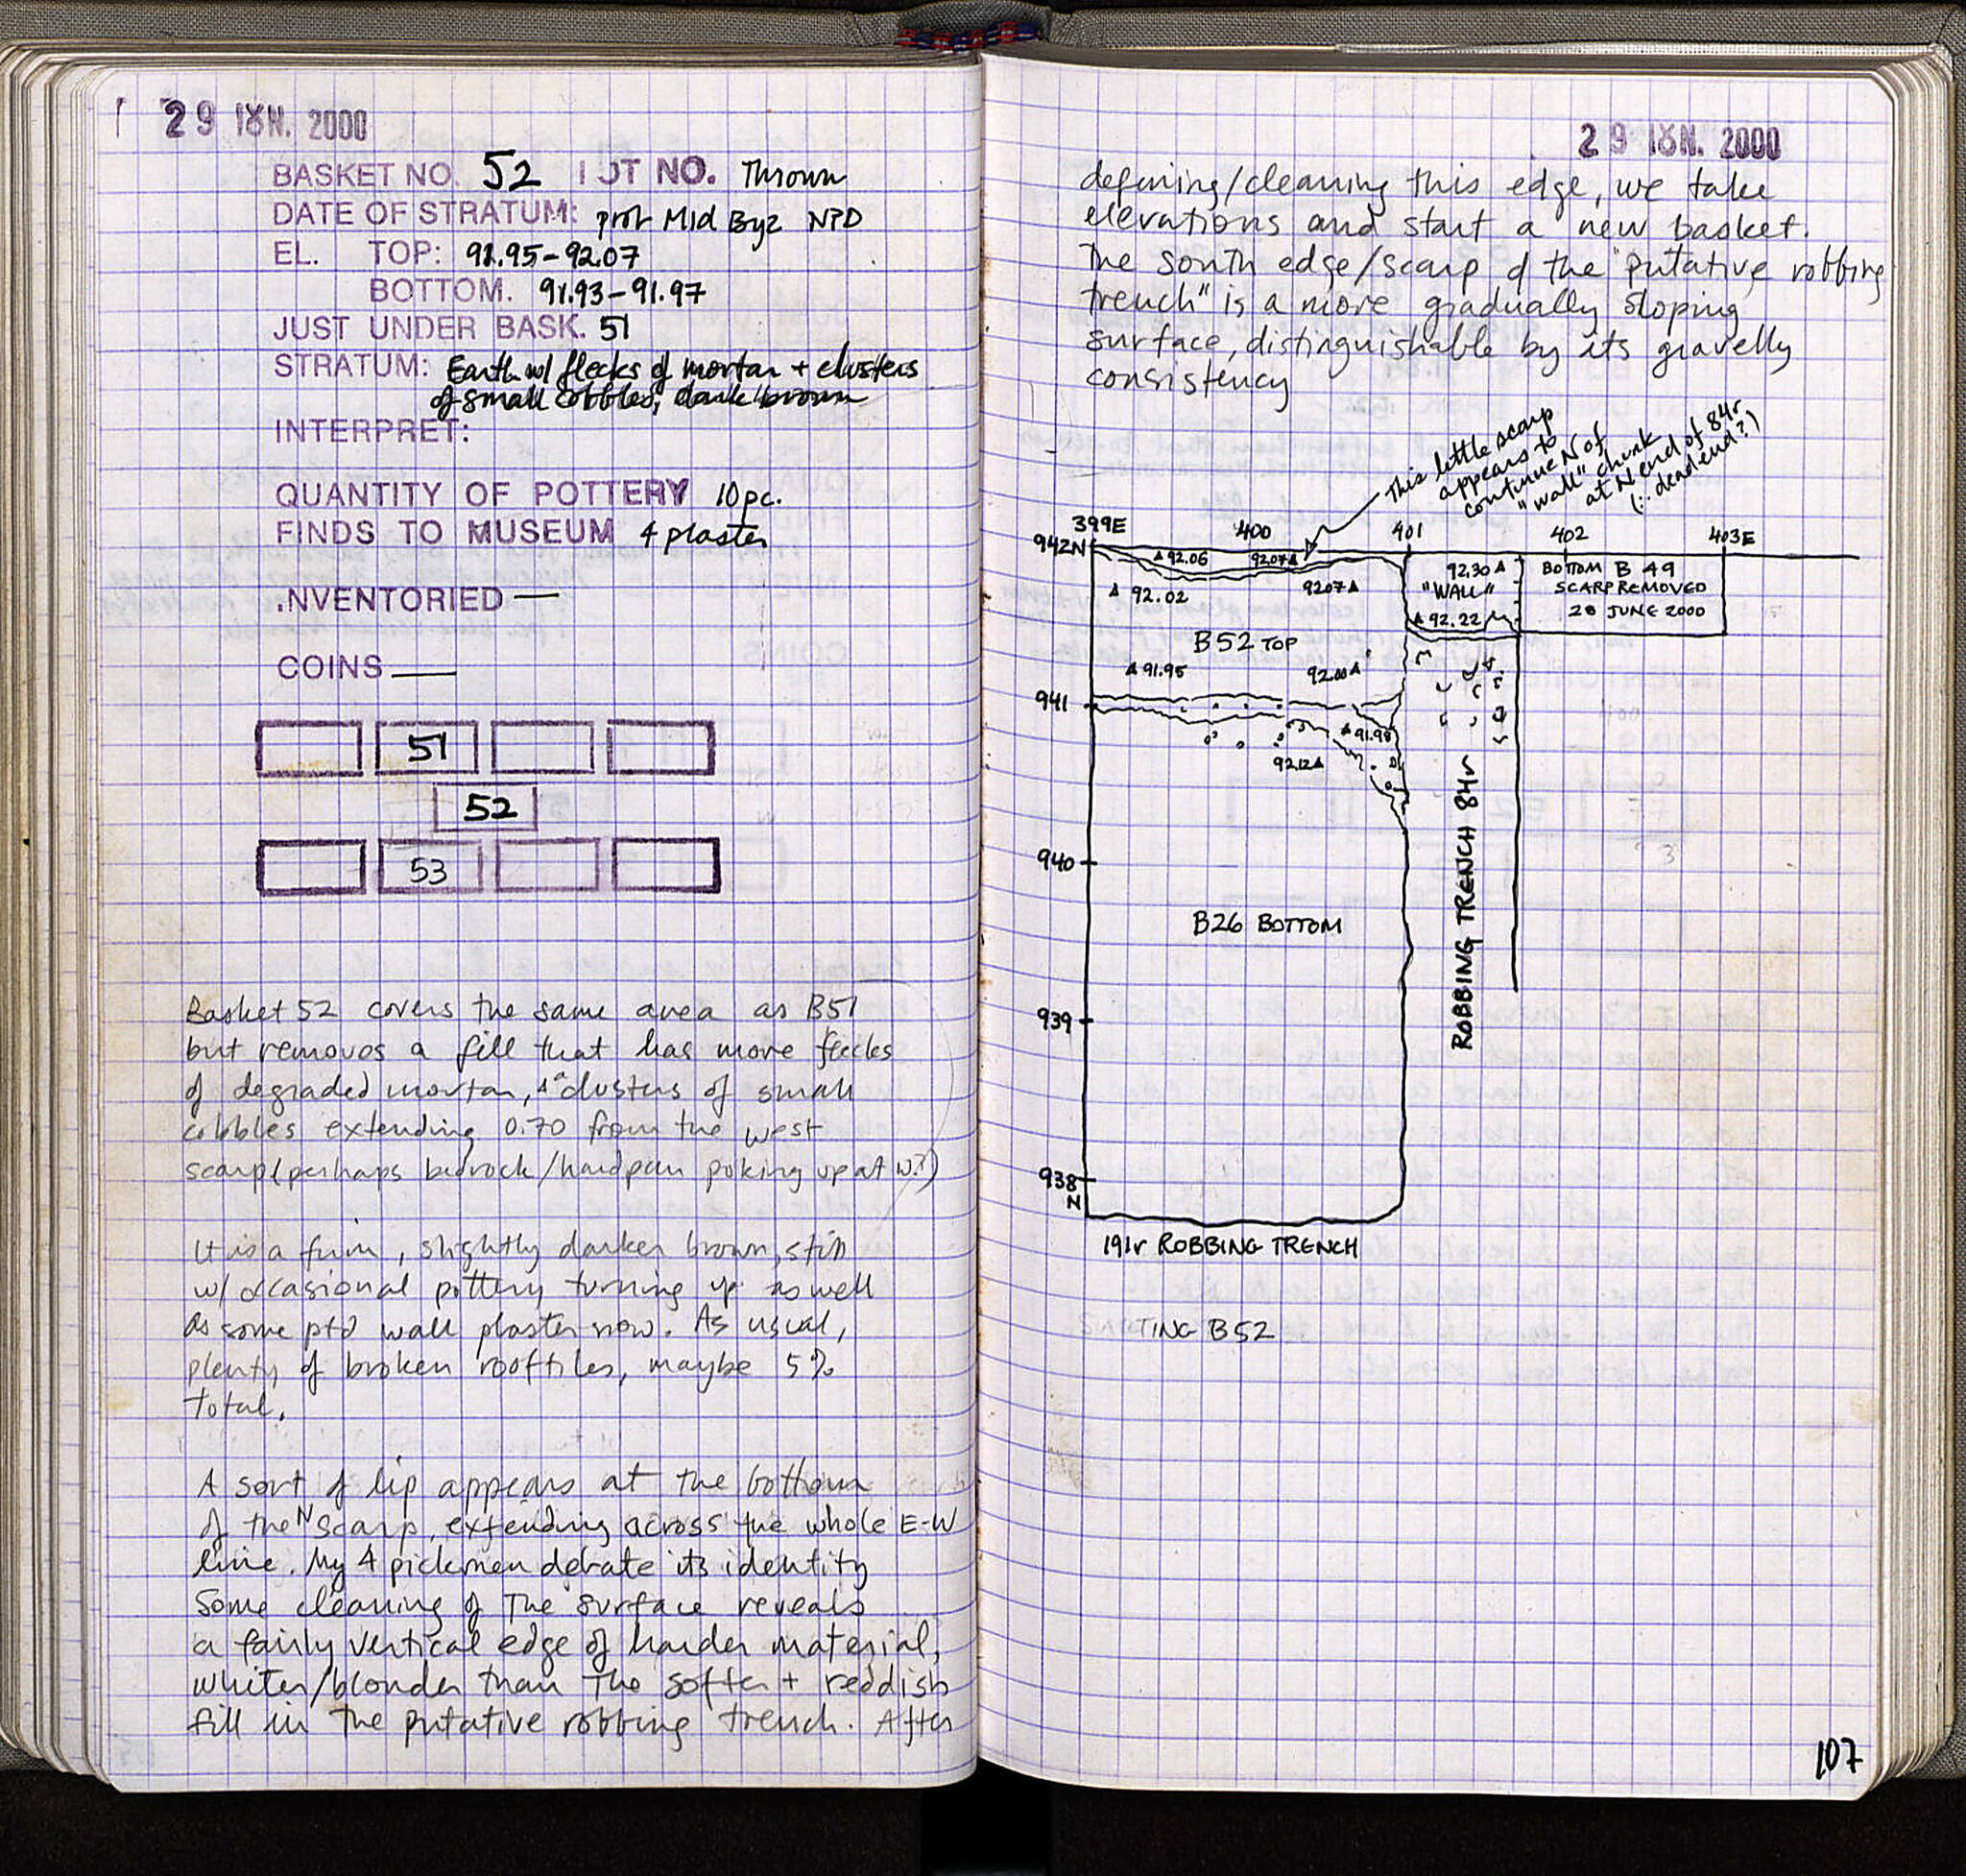 29 ΙΟΥΝ. 2000
BASKET NO. 52 LOT NO. Thrown
DATE OF STRATUM: prob Mid Byz NPD
EL. TOP: 91.95-92.07
BOTTOM. 91.93-91.97
JUST UNDER BASK. 51
STRATUM: Earth w/ flecks of mortar + clusters
of small cobbles, dark brown
INTERPRET:
QUANTITY OF POTTERY 10 pc.
FINDS TO MUSEUM 4 plaster
INVENTORIED —
COINS —
51
52
53
Basket 52 covers the same area as B51
but removes a fill that has more flecks
of degraded mortar, + a clusters of small
cobbles extending 0.70 from the west
scarp (perhaps bedrock/hardpan poking up at W?)
It is a firm, slightly darker brown, still
w/ occasional pottery turning up as well
as some ptd wall plaster now. As usual,
plenty of broken rooftiles, maybe 5%
total.
A sort of lip appears at the bottom
of the N scarp, extending across the whole E-W
line. My 4 pickmen debate its identity
Some cleaning of the surface reveals
a fairly vertical edge of harder material,
whiter/blonder than the softer + reddish
fill in the putative robbing trench. After
29 ΙΟΥΝ. 2000
defining/cleaning this edge, we take
elevations and start a new basket.
The south edge/scarp of the "putative robbing
trench" is a more gradually sloping
surface, distinguishable by its gravelly
consistency
This little scarp
appears to
continue N of
"wall" chunk
at N end of 84r
(∴ dead end?)
399E 400 401 402 403E
942N
92.06 92.07
92.30
BOTTOM B 49
92.02 92.07
"WALL"
SCARP REMOVED
92.22
28 JUNE 2000
B52 TOP
91.95 92.00
941
91.98
92.12
ROBBING TRENCH 84r
940
B26 BOTTOM
939
938
N
191r ROBBING TRENCH
STARTING B52
107